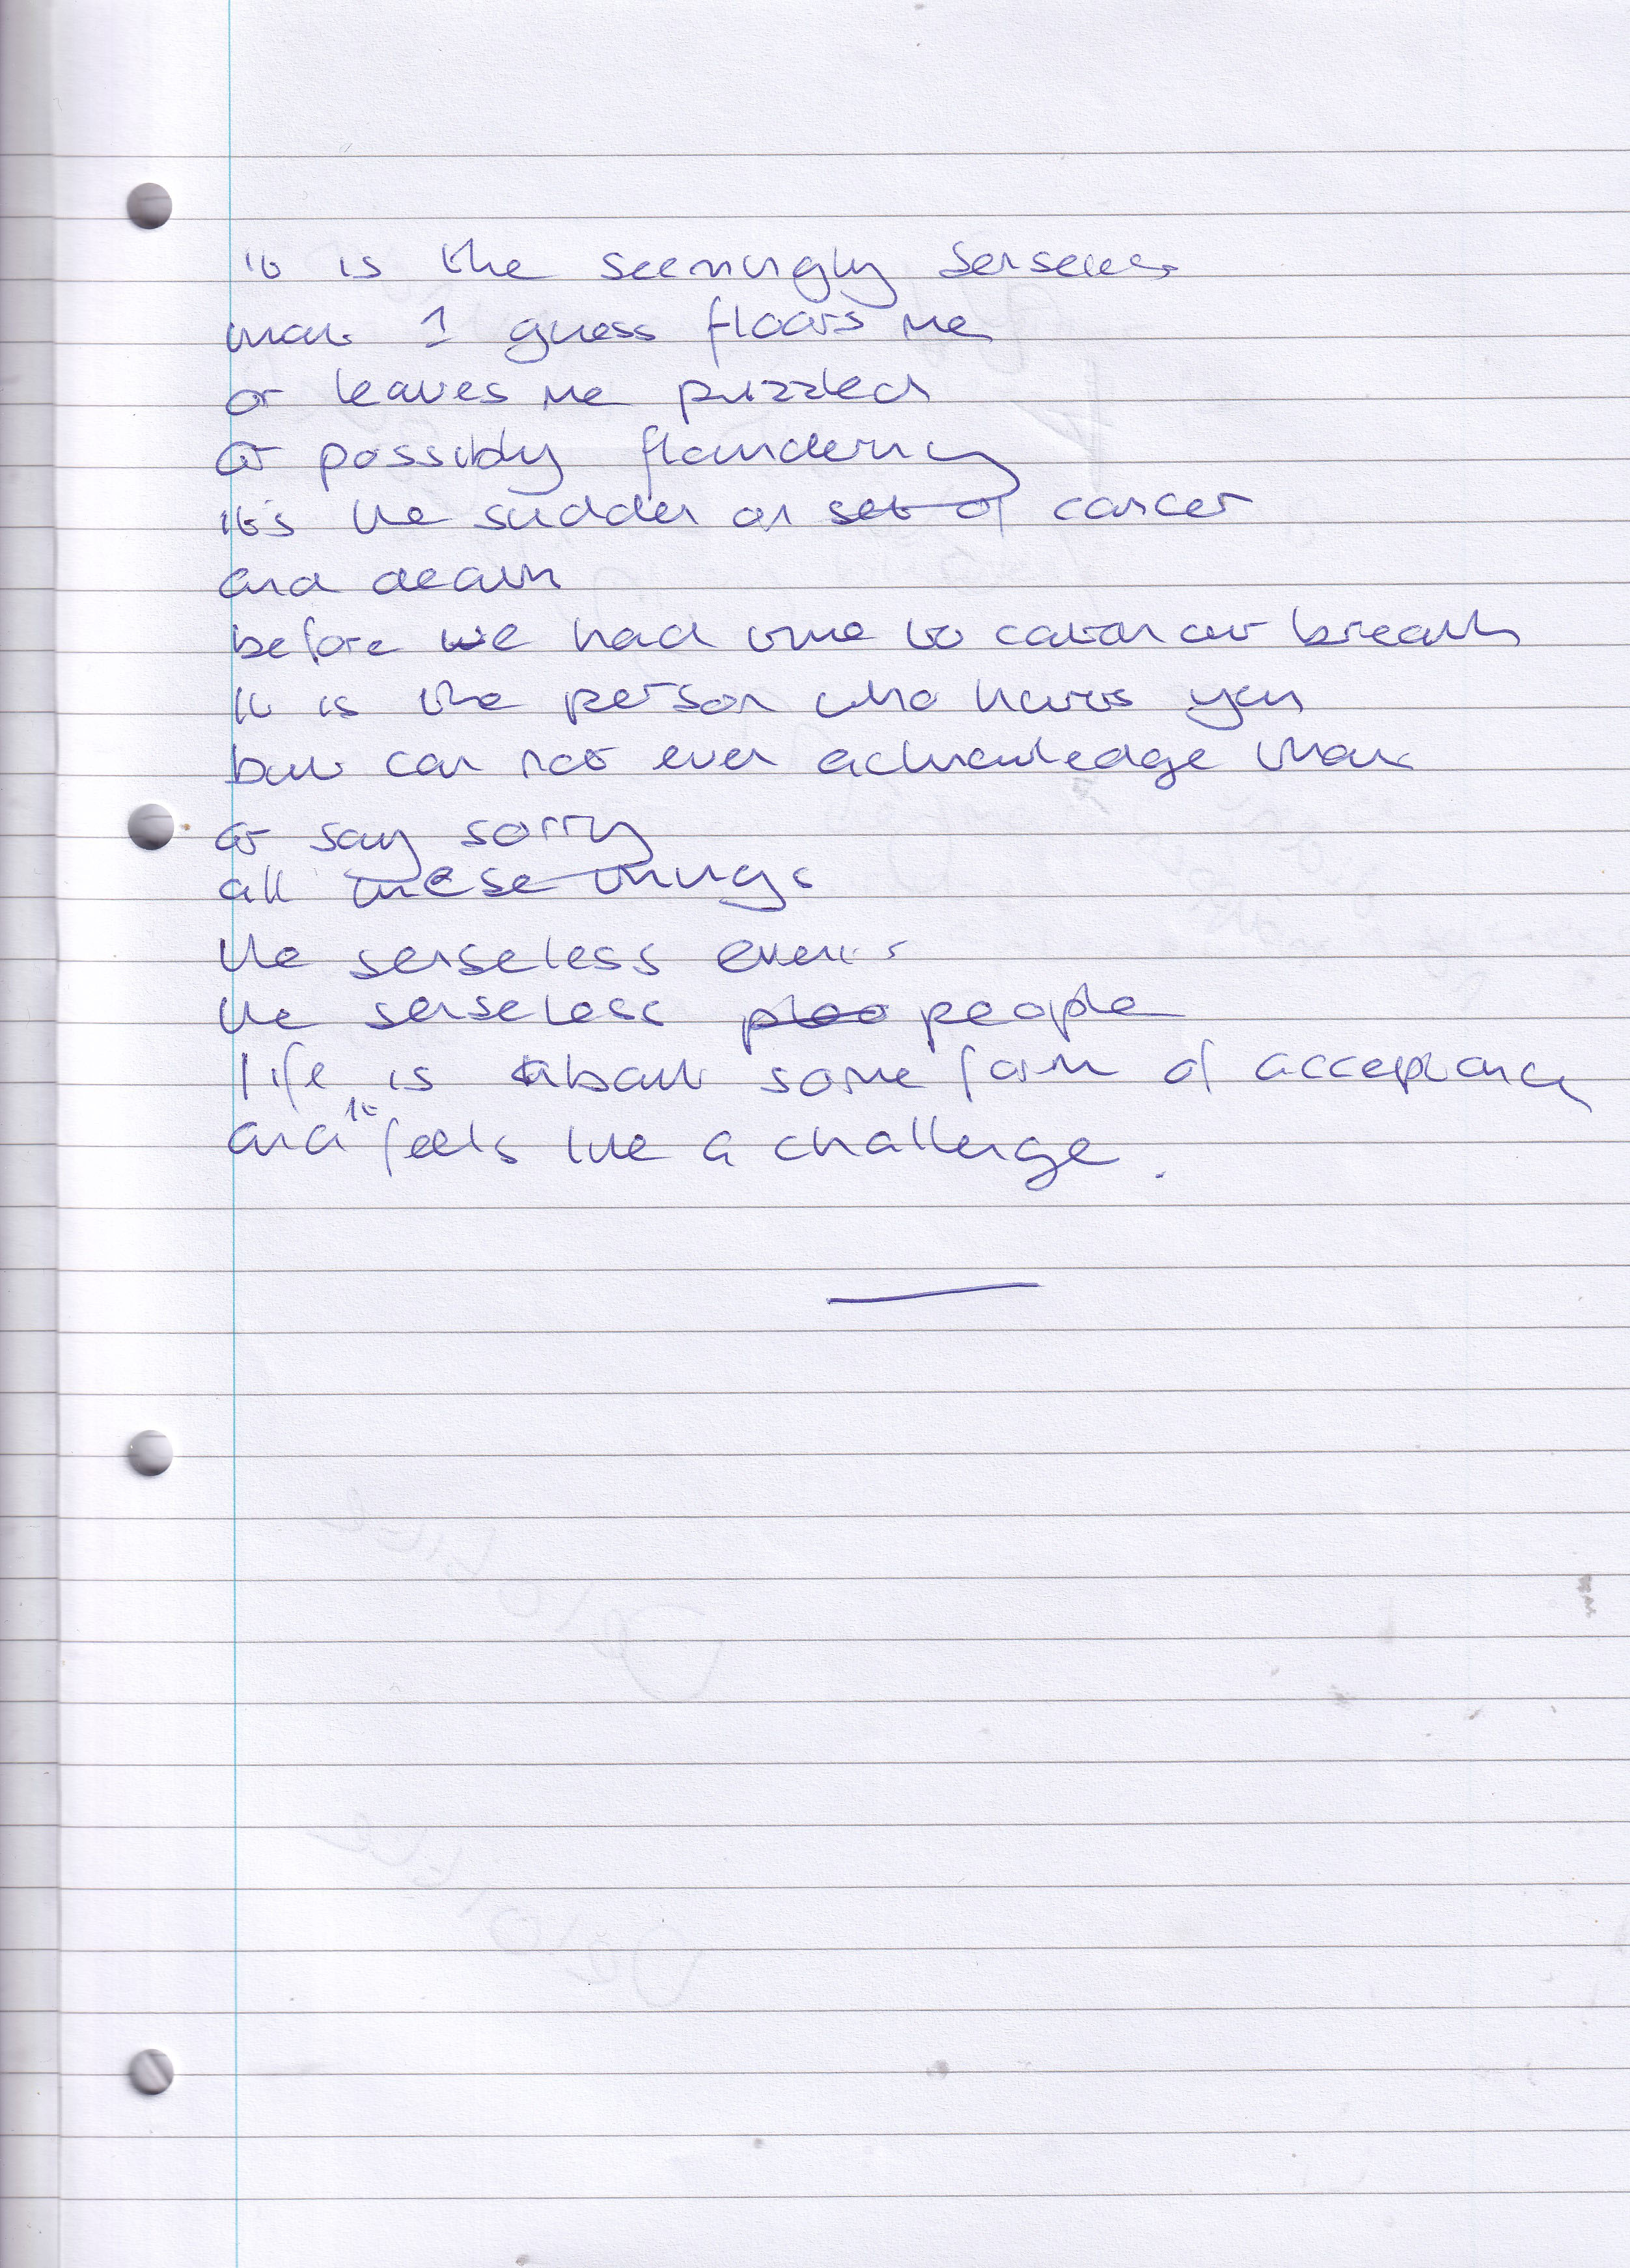 it is the seemingly senseless
that I guess floors me
or leaves me puzzled
or possibly floundering
it's the sudden on set of cancer
and death
before we had time to catch our breath
It is the person who hurts you
but can not ever acknowledge that
or say sorry
all these things
the senseless events
the senseless people
life is about some form of acceptance
and it feels like a challenge.